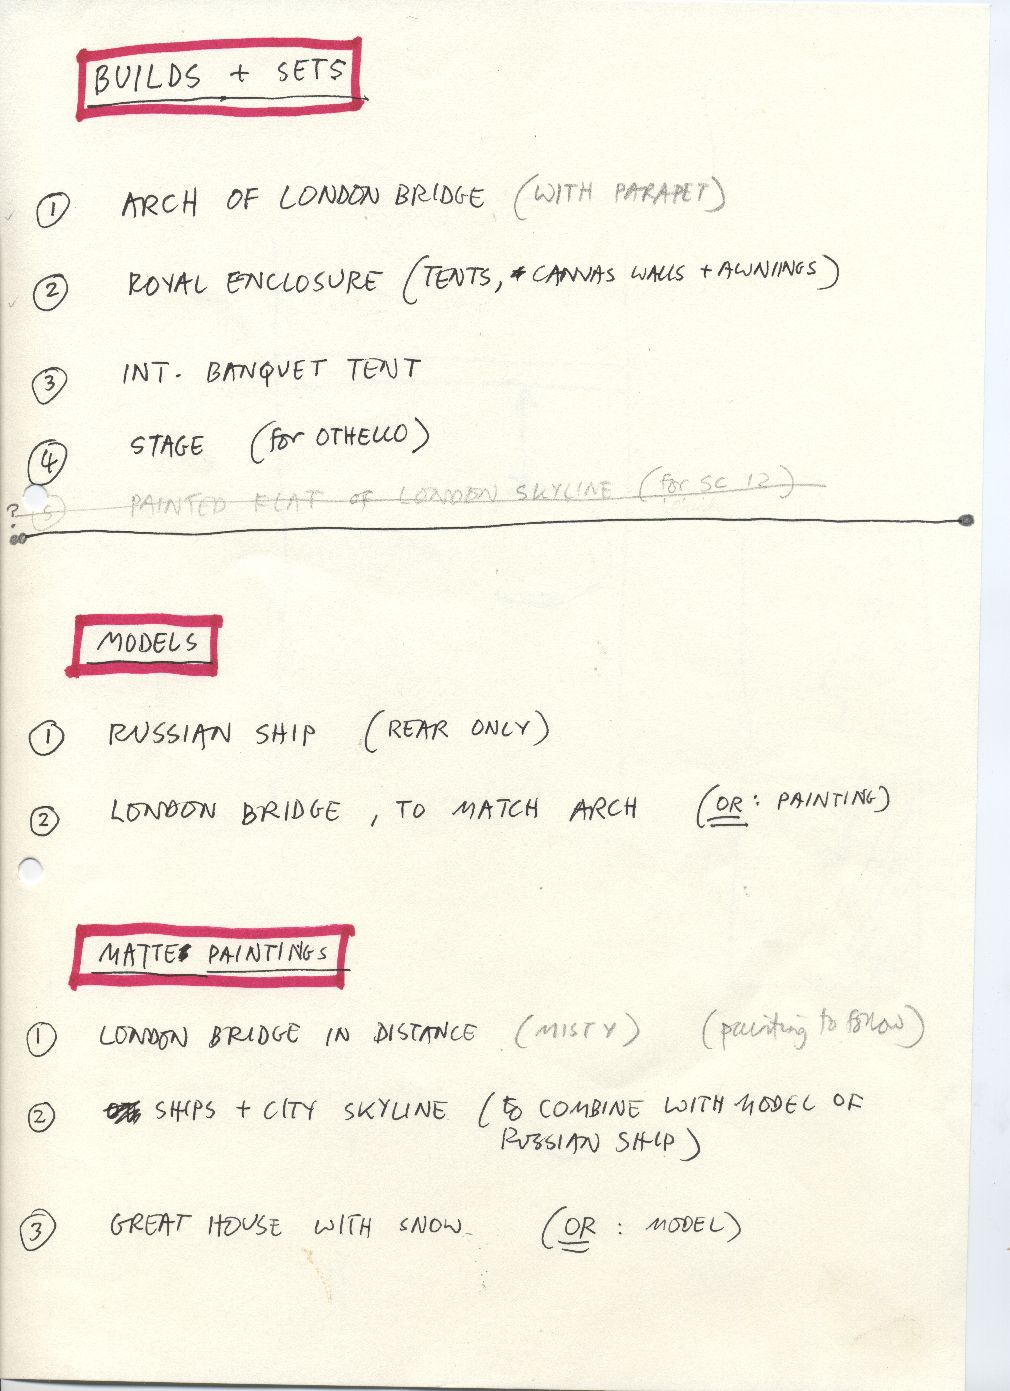 BUILDS + SETS
1 ARCH OF LONDON BRIDGE (WITH PARAPET)
2 ROYAL ENCLOSURE (TENTS, CANVAS WALLS + AWNIINGS)
3 INT. BANQUET TENT
4 STAGE (for OTHELLO)
? 5 PAINTED FLAT OF LONDON SKYLINE (for SC 12)
MODELS
1 RUSSIAN SHIP (REAR ONLY)
2 LONDON BRIDGE, TO MATCH ARCH (OR: PAINTING)
MATTE PAINTINGS
1 LONDON BRIDGE IN DISTANCE (MISTY) (painting to follow)
2 SHIPS + CITY SKYLINE (to COMBINE WITH MODEL OF
RUSSIAN SHIP)
3 GREAT HOUSE WITH SNOW. (OR: MODEL)